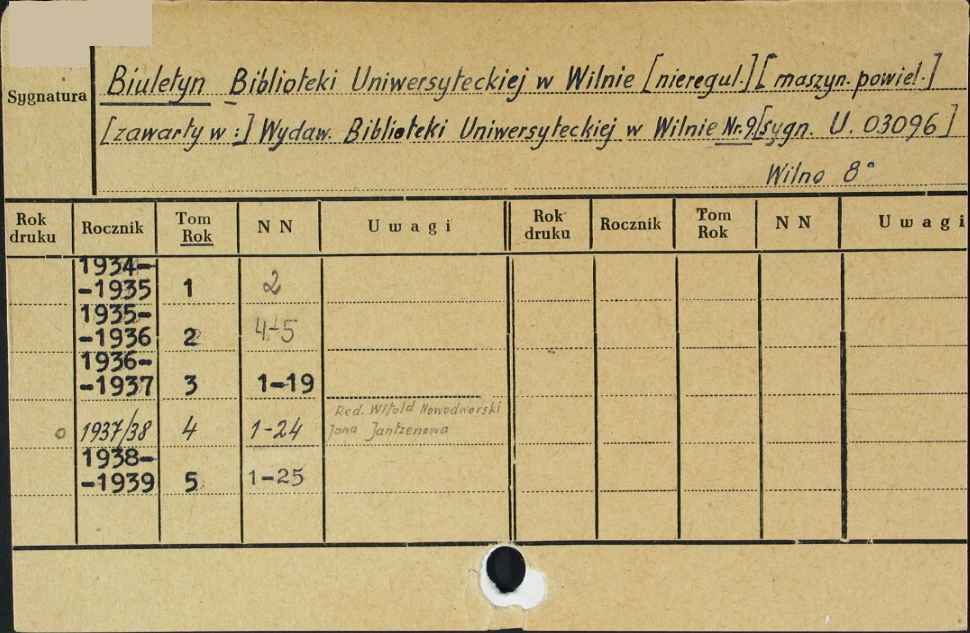 Sygnatura
Biuletyn Biblioteki Uniwersyteckiej w Wilnie [nieregul.] [maszyn. powiel.]
[zawarty w :] Wydaw. Biblioteki Uniwersyteckiej w Wilnie Nr. 9 [sygn. U. 03096]
Wilno 8°
Rok druku Rocznik Tom Rok N N Uwagi Rok druku Rocznik Tom Rok N N Uwagi
1934-
-1935 1 2
1935-
-1936 2 4-5
1936-
-1937 3 1-19
Red. Witold Nowodworski
o 1937/38 4 1-24 Jana Jantzenowa
1938-
-1939 5 1-25